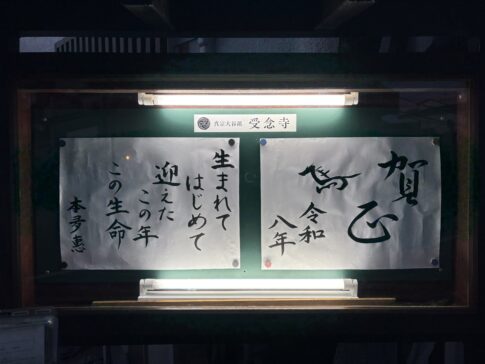 真宗大谷派 受念寺
賀正
令和
八年
生まれて
はじめて
迎えた
この年
この生命
本多恵